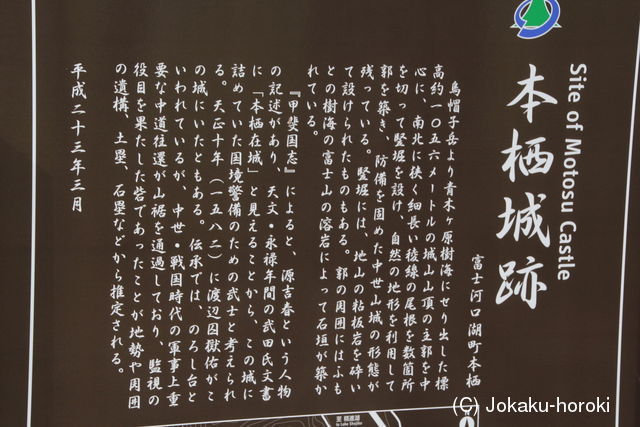 本栖城跡
Site of Motosu Castle
富士河口湖町本栖
烏帽子岳より青木ヶ原樹海にせり出した標
高約一〇五六メートルの城山山頂の主郭を中
心に、南北に狭く細長い稜線の尾根を数箇所
を切って竪堀を設け、自然の地形を利用して
郭を築き、防備を固めた中世山城の形態が
残っている。竪堀には、地山の粘板岩を砕い
て設けられたものもある。郭の周囲にはふも
との樹海の富士山の溶岩によって石垣が築か
れている。
『甲斐国志』によると、源吉春という人物
の記述があり、天文・永禄年間の武田氏文書
に「本栖在城」と見えることから、この城に
詰めていた国境警備のための武士と考えられ
る。天正十年（一五八二）に渡辺囚獄佑がこ
の城にいたともある。伝承では、のろし台と
いわれているが、中世・戦国時代の軍事上重
要な中道往還が山裾を通過しており、監視の
役目を果たした砦であったことが地勢や周囲
の遺構、土塁、石塁などから推定される。
平成二十三年三月
至 精進湖
to Lake Shojiko
(C) Jokaku-horoki